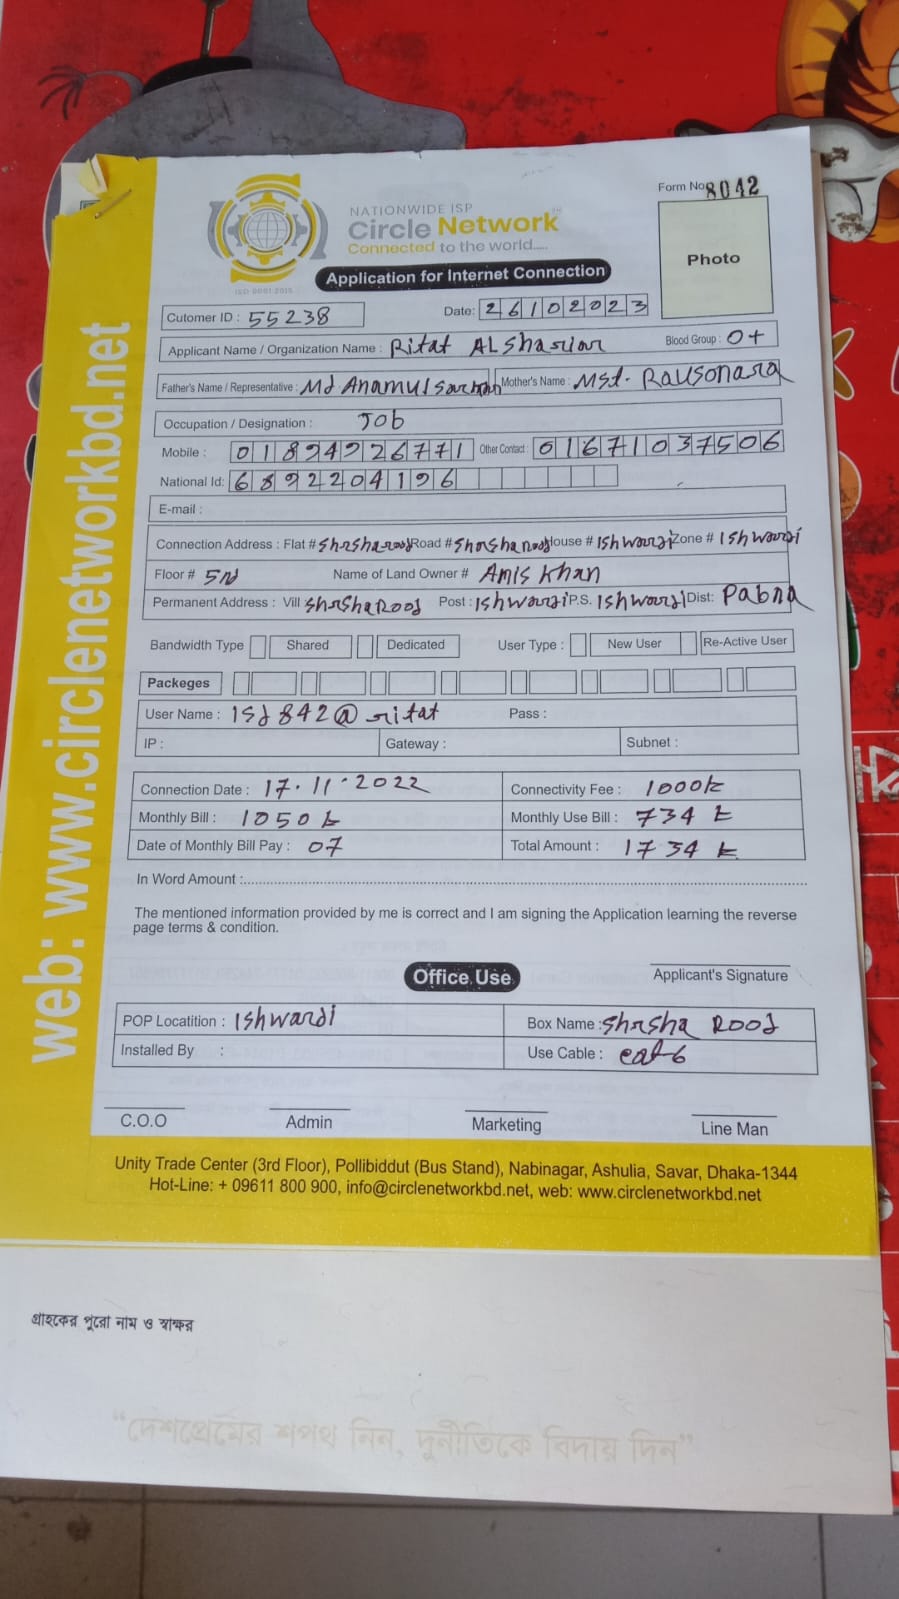 Form No 8042
NATIONWIDE ISP
Circle Network
Connected to the world.....
ISO 9001:2015
Photo
Application for Internet Connection
Cutomer ID : 55238 Date: 26102023
Applicant Name / Organization Name : Ritat AL Shariar Blood Group : O+
Father's Name / Representative : Md Anamul Mother's Name : Mst. Rausonara
Occupation / Designation : Job
Mobile : 01894926771 Other Contact : 01671037506
National Id: 6892204196
E-mail :
Connection Address : Flat # Road # House # Ishwardi Zone # Ishwardi
Floor # 5 Name of Land Owner # Amis Khan
Permanent Address : Vill Post : Ishwardi P.S. Ishwardi Dist: Pabna
Bandwidth Type Shared Dedicated User Type : New User Re-Active User
Packeges
User Name : ISd842@ritat Pass :
IP : Gateway : Subnet :
Connection Date : 17.11.2022 Connectivity Fee : 1000
Monthly Bill : 1050 Monthly Use Bill : 734
Date of Monthly Bill Pay : 07 Total Amount : 1734
In Word Amount :
The mentioned information provided by me is correct and I am signing the Application learning the reverse
page terms & condition.
Office Use Applicant's Signature
POP Locatition : Ishwardi Box Name :
Installed By : Use Cable : cat-6
C.O.O Admin Marketing Line Man
Unity Trade Center (3rd Floor), Pollibiddut (Bus Stand), Nabinagar, Ashulia, Savar, Dhaka-1344
Hot-Line: + 09611 800 900, info@circlenetworkbd.net, web: www.circlenetworkbd.net
web: www.circlenetworkbd.net
গ্রাহকের পুরো নাম ও স্বাক্ষর
“দেশপ্রেমের শপথ নিন, দুর্নীতিকে বিদায় দিন”